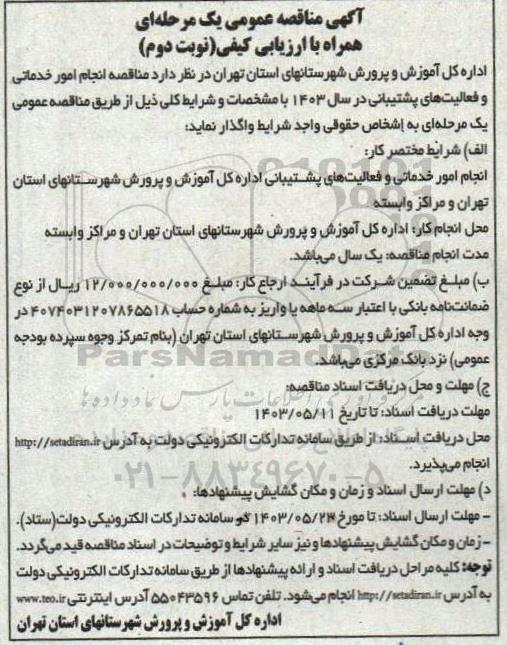 آگهی مناقصه عمومی یک مرحله‌ای
همراه با ارزیابی کیفی(نوبت دوم)
اداره کل آموزش و پرورش شهرستانهای استان تهران در نظر دارد مناقصه انجام امور خدماتی
و فعالیت‌های پشتیبانی در سال ۱۴۰۳ با مشخصات و شرایط کلی ذیل از طریق مناقصه عمومی
یک مرحله‌ای به إشخاص حقوقی واجد شرایط واگذار نماید:
الف) شرایط مختصر کار:
انجام امور خدماتی و فعالیت‌های پشتیبانی اداره کل آموزش و پرورش شهرستانهای استان
تهران و مراکز وابسته
محل انجام کار: اداره کل آموزش و پرورش شهرستانهای استان تهران و مراکز وابسته
مدت انجام مناقصه: یک سال می‌باشد.
ب) مبلغ تضمین شرکت در فرآیند ارجاع کار: مبلغ ۱۲/۰۰۰/۰۰۰/۰۰۰ ریال از نوع
ضمانت‌نامه بانکی با اعتبار سه ماهه یا واریز به شماره حساب ۴۰۷۴۰۳۱۲۰۷۸۶۵۵۱۸ در
وجه اداره کل آموزش و پرورش شهرستانهای استان تهران (بنام تمرکز وجوه سپرده بودجه
عمومی) نزد بانک مرکزی می‌باشد.
ParsNamadData
ج) مهلت و محل دریافت اسناد مناقصه:
مهلت دریافت اسناد: تا تاریخ ۱۴۰۳/۰۵/۱۱
محل دریافت اسناد: از طریق سامانه تدارکات الکترونیکی دولت به آدرس http://setadiran.ir
انجام می‌پذیرد.
۰۲۱-۸۸۳۴۹۶۷۰-۵
د) مهلت ارسال اسناد و زمان و مکان گشایش پیشنهادها:
- مهلت ارسال اسناد: تا مورخ ۱۴۰۳/۰۵/۲۳ در سامانه تدارکات الکترونیکی دولت(ستاد).
- زمان و مکان گشایش پیشنهادها و نیز سایر شرایط و توضیحات در اسناد مناقصه قید می‌گردد.
توجه: کلیه مراحل دریافت اسناد و ارائه پیشنهادها از طریق سامانه تدارکات الکترونیکی دولت
به آدرس http://setadiran.ir انجام می‌شود. تلفن تماس ۵۵۰۴۳۵۹۶ آدرس اینترنتی www.teo.ir
اداره کل آموزش و پرورش شهرستانهای استان تهران